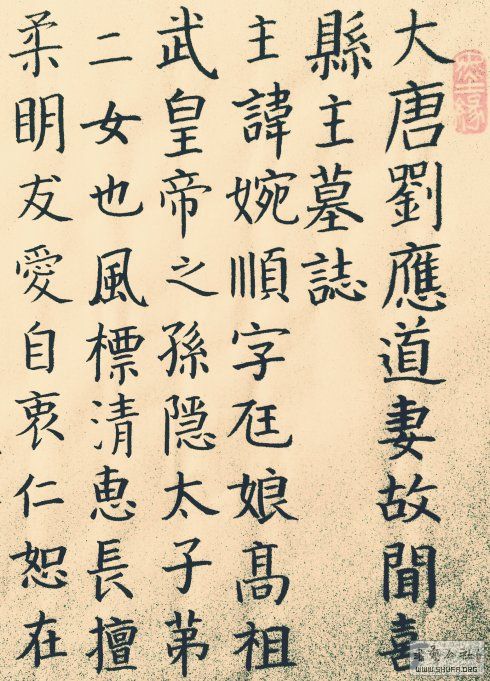 大唐劉應道妻故聞喜
縣主墓誌
主諱婉順字尫娘髙祖
武皇帝之孫隐太子苐
二女也風標清恵長擅
柔明友愛自衷仁恕在
WWW.SHUFA.ORG